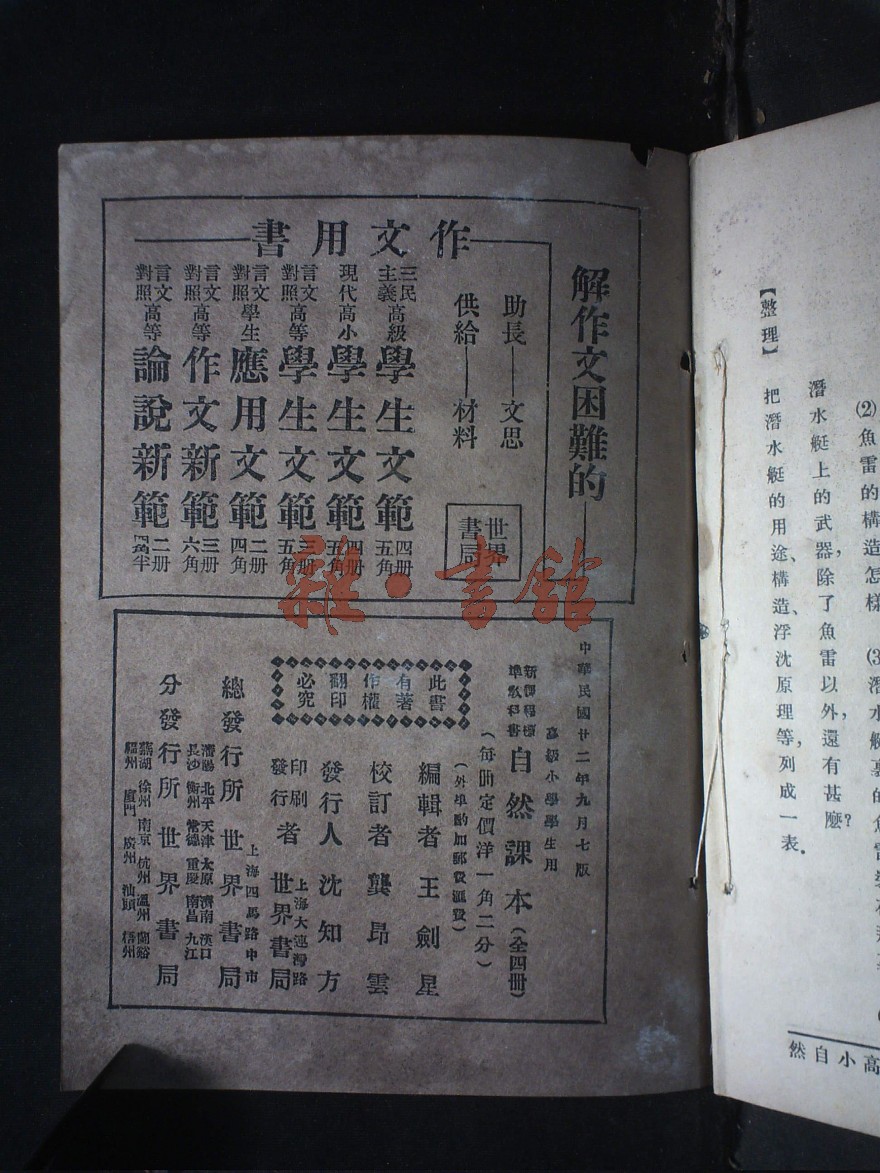 【整理】 把潛水艇的用途、構造、浮沈原理等，列成一表。
潛水艇上的武器，除了魚雷以外，還有甚麼？
(2)魚雷的構造怎樣
高小自然
解作文困難的
作文用書
助長——文思
供給——材料
世界書局
三民主義高級學生文範 四册五角
現代高小學生文範 四册五角
言文對照高等學生文範 三册五角
言文對照學生應用文範 二册四角
言文對照高等作文新範 三册六角
言文對照高等論說新範 二册四角半
雜·書館
中華民國廿二年九月七版
高級小學學生用
新課程標準教科書 自然課本（全四冊）
（每冊定價洋一角二分）
（外埠酌加郵費滙費）
此書有著作權翻印必究
編輯者 王劍星
校訂者 龔昂雲
發行人 沈知方
印刷發行者 上海大連灣路 世界書局
總發行所 上海四馬路中市 世界書局
分發行所 世界書局
瀋陽 北平 天津 太原 濟南 漢口
長沙 衡州 常德 重慶 南昌 九江
蕪湖 徐州 南京 杭州 溫州 蘭谿
福州 廈門 廣州 汕頭 梧州